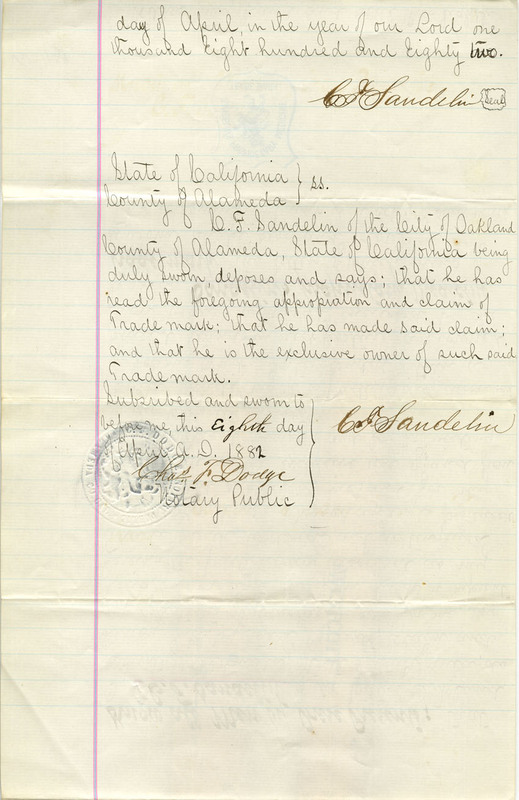 day of April, in the year of our Lord one
thousand Eight hundred and Eighty two.
C. F. Sandelin Seal
State of California } ss.
County of Alameda
C. F. Sandelin of the City of Oakland
County of Alameda, State of California being
duly sworn, deposes and says; that he has
read the foregoing appropiation and claim of
Trade mark; that he has made said claim;
and that he is the exclusive owner of such said
Trade mark.
Subscribed and sworn to
before me, this Eighth day
of April A.D. 1882
C. F. Sandelin
Chas F. Dodge
Notary Public